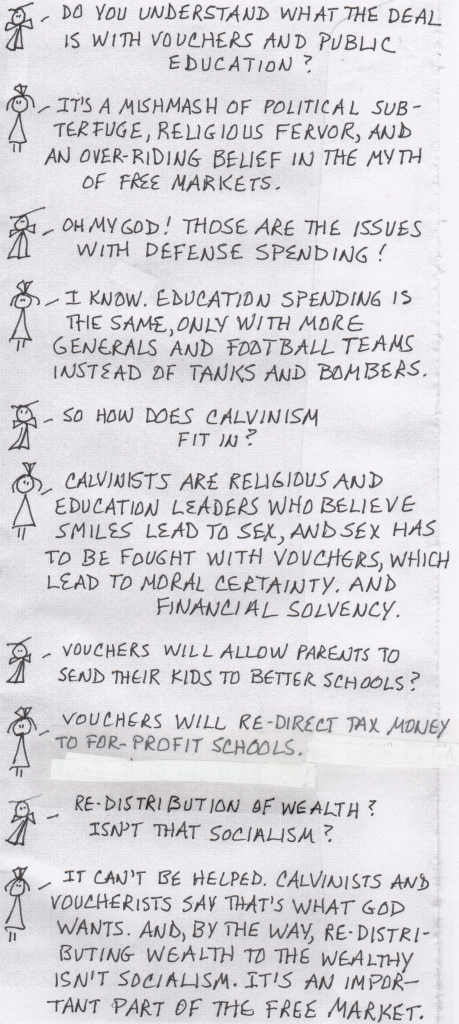 DO YOU UNDERSTAND WHAT THE DEAL
IS WITH VOUCHERS AND PUBLIC
EDUCATION?
IT'S A MISHMASH OF POLITICAL SUB-
TERFUGE, RELIGIOUS FERVOR, AND
AN OVER-RIDING BELIEF IN THE MYTH
OF FREE MARKETS.
OH MY GOD! THOSE ARE THE ISSUES
WITH DEFENSE SPENDING!
I KNOW. EDUCATION SPENDING IS
THE SAME, ONLY WITH MORE
GENERALS AND FOOTBALL TEAMS
INSTEAD OF TANKS AND BOMBERS.
SO HOW DOES CALVINISM
FIT IN?
CALVINISTS ARE RELIGIOUS AND
EDUCATION LEADERS WHO BELIEVE
SMILES LEAD TO SEX, AND SEX HAS
TO BE FOUGHT WITH VOUCHERS, WHICH
LEAD TO MORAL CERTAINTY. AND
FINANCIAL SOLVENCY.
VOUCHERS WILL ALLOW PARENTS TO
SEND THEIR KIDS TO BETTER SCHOOLS?
VOUCHERS WILL RE-DIRECT TAX MONEY
TO FOR-PROFIT SCHOOLS.
RE-DISTRIBUTION OF WEALTH?
ISN'T THAT SOCIALISM?
IT CAN'T BE HELPED. CALVINISTS AND
VOUCHERISTS SAY THAT'S WHAT GOD
WANTS. AND, BY THE WAY, RE-DISTRI-
BUTING WEALTH TO THE WEALTHY
ISN'T SOCIALISM. IT'S AN IMPOR-
TANT PART OF THE FREE MARKET.